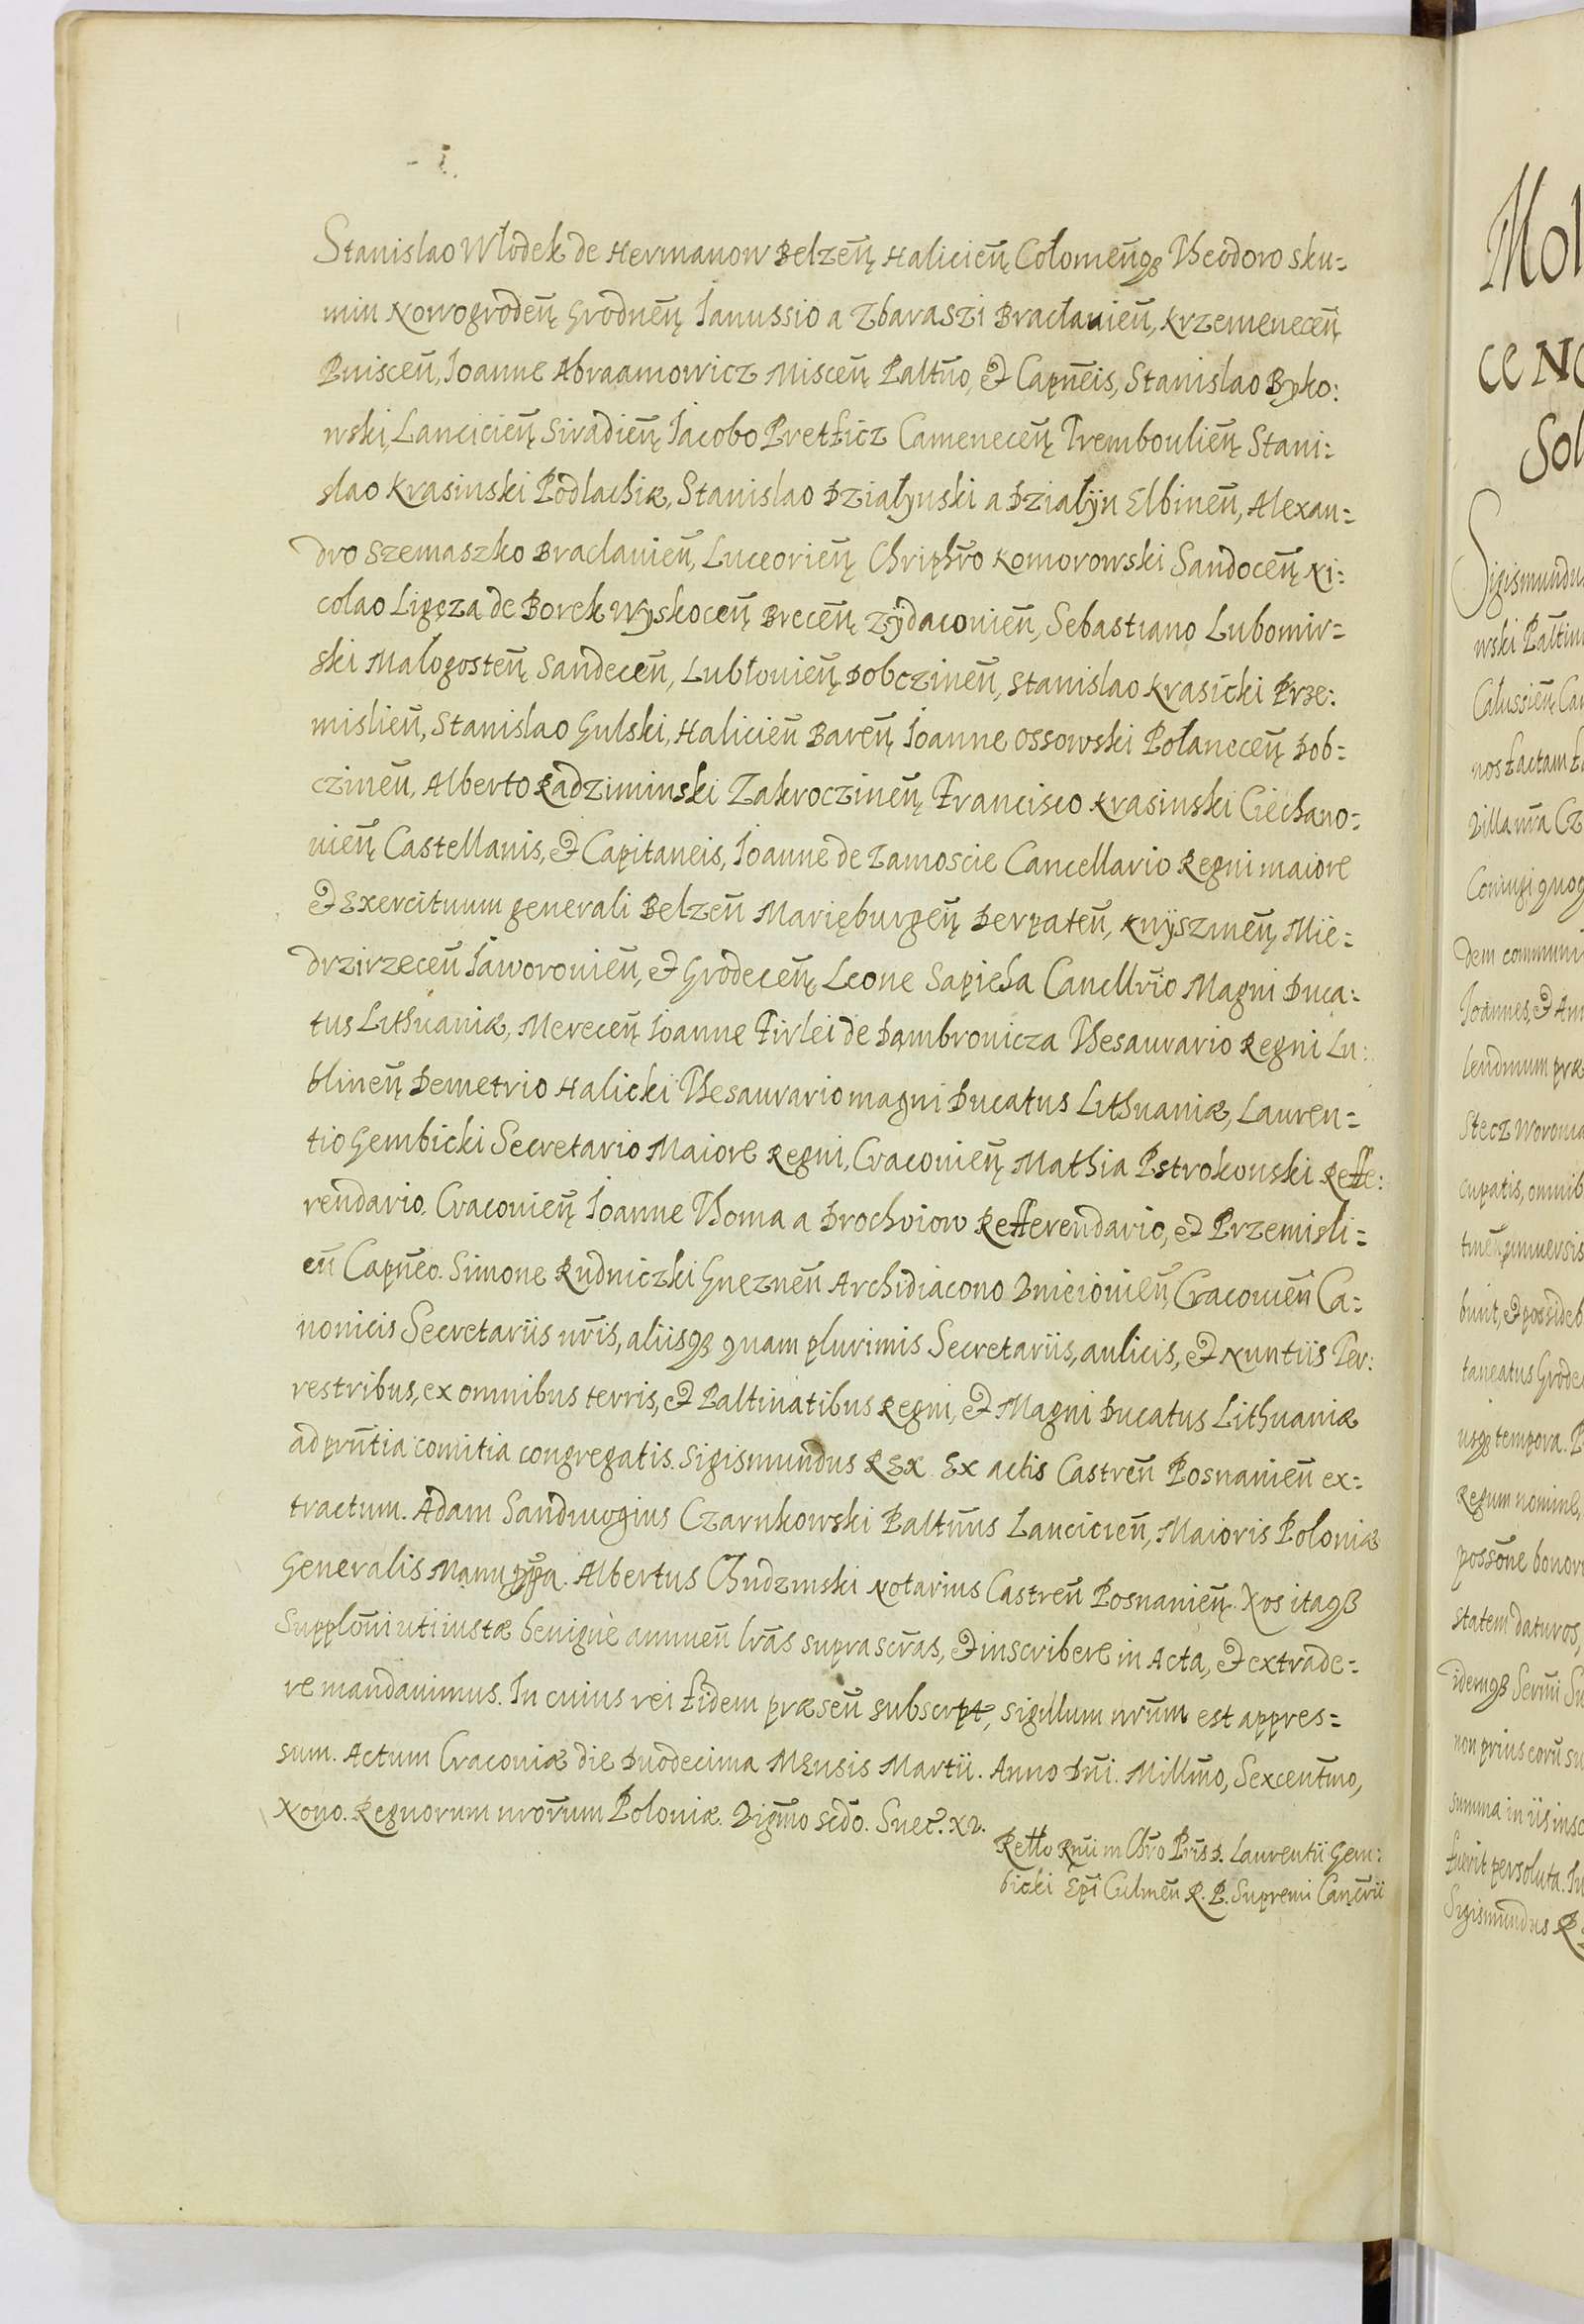 Stanislao Włodek de Hermanow Belzeñ, Halicień, Cołomeñqȝ Theodoro Sku=
min Nowogrodeñ, Grodneñ, Ianussio a Zbaraszi Bracłauień, Krzemeneceñ,
Pinsceñ, Ioanne Abraamowicz Misceñ, Paltño, & Capñeis, Stanislao Byko:
wski, Lancicień, Siradień, Iacobo Pretficz Cameneceñ, Trembouлień, Stani=
slao Krasinski Podlachiæ, Stanislao Działynski a Działÿn Elbineñ, Alexan=
dro Szemaszko Braclauień, Luceorień, Chriphr̃o Komorowski Sandoceñ, Ni=
colao Ligęza de Borek Wyskoceñ, Breceñ, Zÿdaconień, Sebastiano Lubomir=
ski Małogosteñ, Sandeceñ, Lubłouień, Dobczineñ, Stanislao Krasicki Prze:
mislień, Stanislao Gulski, Halicień Bareñ, Ioanne Ossowski Połaneceñ, Dob=
czineñ, Alberto Radziminski Zakroczineñ, Francisco Krasinski Ciechano=
uień, Castellanis, & Capitaneis, Ioanne de Zamoscie Cancellario Regni maiore
& Exercituum generali Belzeñ Marięburgeñ, Derpateñ, Knÿszineñ, Mie=
drzirzeceñ Iaworouień, & Grodeceñ, Leone Sapieha Cancllr̃io Magni Duca=
tus Lithuaniæ, Mereceñ, Ioanne Firlei de Dąmbrouicza Thesaurario Regni Lu:
blineñ, Demetrio Halicki Thesaurario magni Ducatus Lithuaniæ, Lauren=
tio Gembicki Secretario Maiore Regni, Cracouień, Mathia Pstrokonski Reffe:
rendario. Cracouień, Ioanne Thoma a Drohoiow Refferendario, & Przemisli=
eñ Capñeo. Simone Rudniczki Gnezneñ Archidiacono Cracouień Ca=
nonicis Secretariis nr̃is, aliisqȝ quam plurimis Secretariis, aulicis, & Nuntiis Ter:
restribus, ex omnibus terris, & Paltinatibus Regni, & Magni Ducatus Lithuaniæ
ad prñtia comitia congregatis. Sigismundus REX. Ex actis Castreñ Posnanień ex=
tractum. Adam Sandiuogius Czarnkowski Paltiñus Lancicień, Maioris Poloniæ
Generalis Manu ppa. Albertus Chudzinski Notarius Castreñ Posnanień, Nos itaqȝ
Supploñi uti iustæ benignè annueñ lr̃as suprascr̃as, & inscribere in Acta, & extrade=
re mandauimus. In cuius rei fidem præseñ subscrpt, sigillum nr̃um est appres=
sum. Actum Cracouiæ die Duodecima Mensis Martii. Anno Dñi. Millm̃o, Sexcentm̃o,
Nono. Regnorum nror̃um Poloniæ. Vigm̃o scdõ. Suec̃. XV.
Retto Rñii in Chr̃o Pr̃is D. Laurentii Gem:
bicki Epĩ Culmeñ R. P. Supremi Canc̃rii